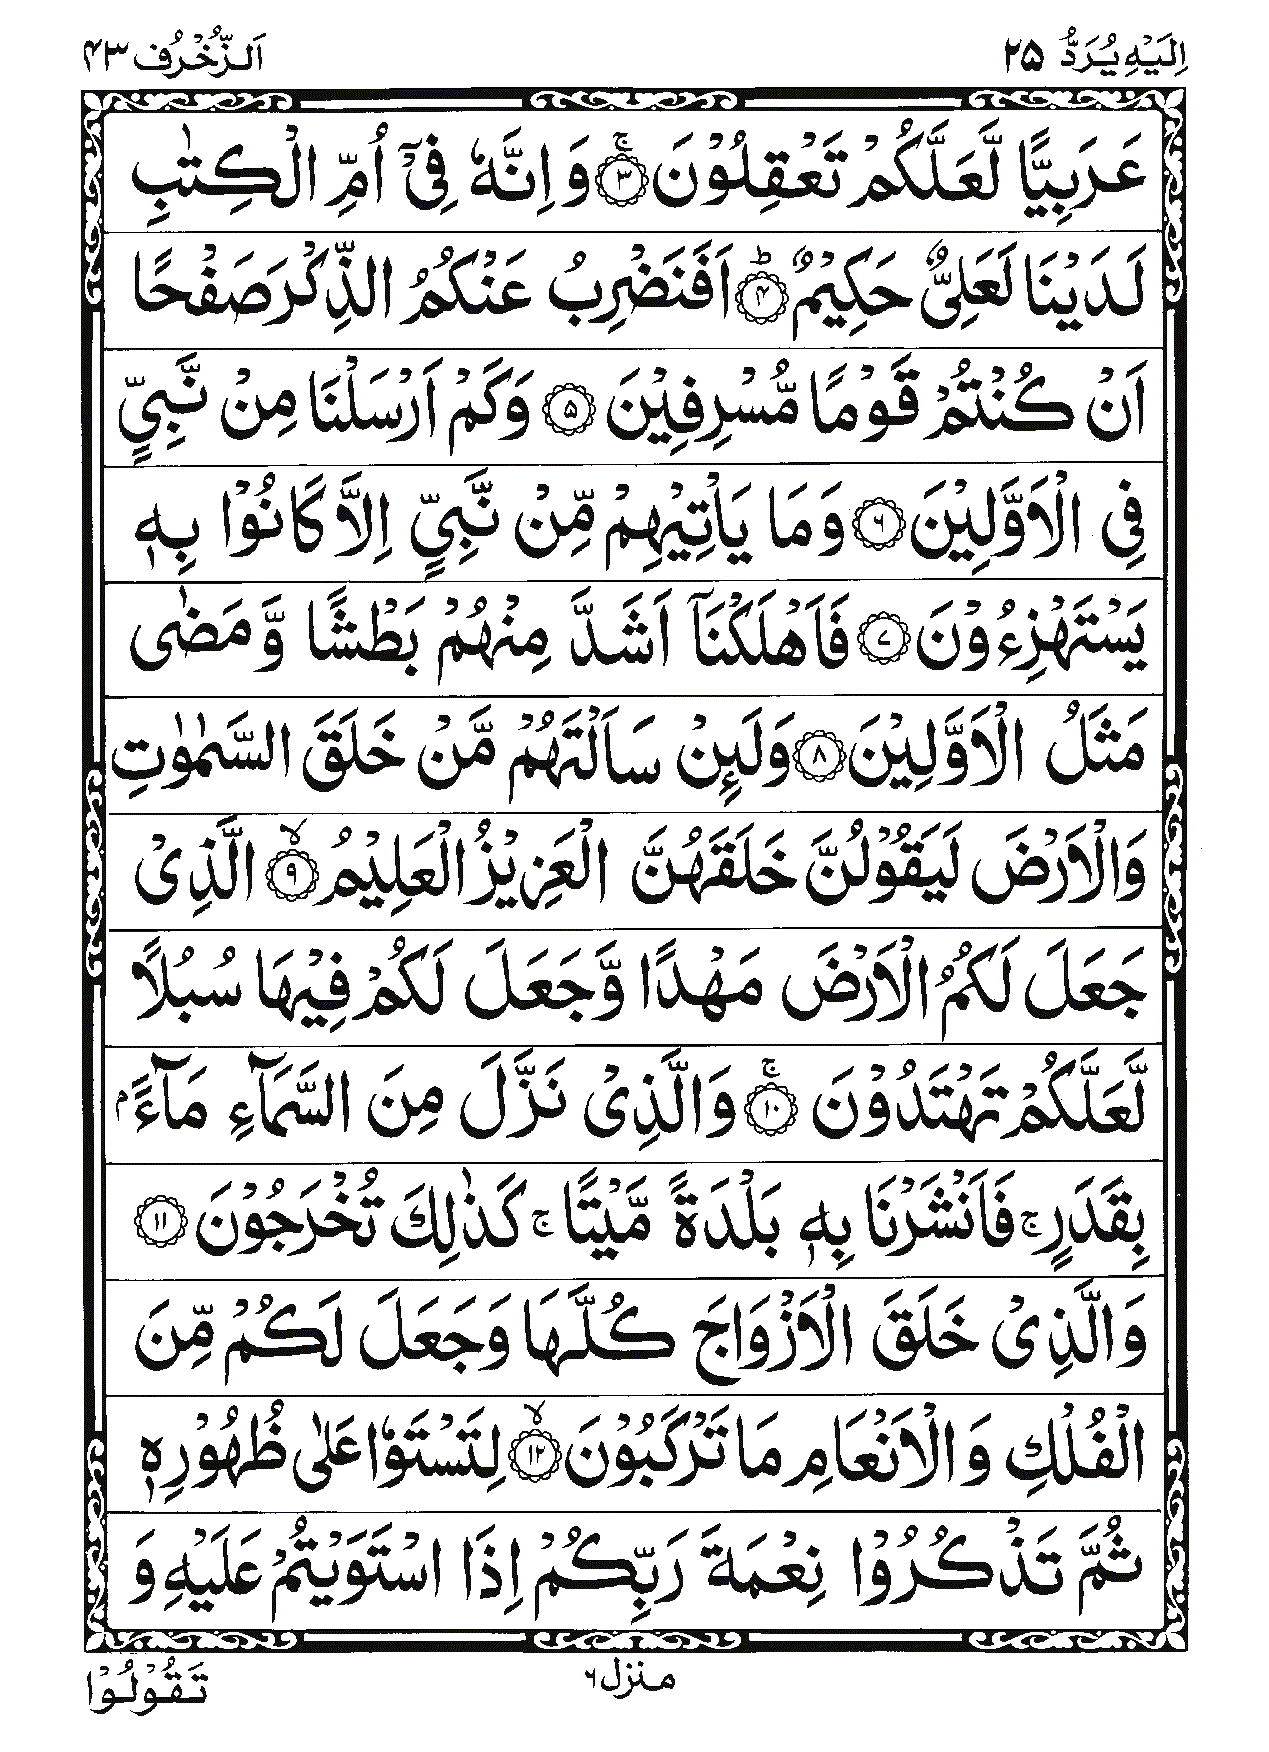 اِلَیْهِ یُرَدُّ ۲۵
اَلزُّخْرُف ۴۳
عَرَبِیًّا لَّعَلَّكُمْ تَعْقِلُوْنَ ۚ﴿۳﴾ وَ اِنَّهٗ فِیْۤ اُمِّ الْكِتٰبِ
لَدَیْنَا لَعَلِیٌّ حَكِیْمٌ ؕ﴿۴﴾ اَفَنَضْرِبُ عَنْكُمُ الذِّكْرَ صَفْحًا
اَنْ كُنْتُمْ قَوْمًا مُّسْرِفِیْنَ ﴿۵﴾ وَكَمْ اَرْسَلْنَا مِنْ نَّبِیٍّ
فِی الْاَوَّلِیْنَ ﴿۶﴾ وَمَا یَاْتِیْهِمْ مِّنْ نَّبِیٍّ اِلَّا كَانُوْا بِهٖ
یَسْتَهْزِءُوْنَ ﴿۷﴾ فَاَهْلَكْنَاۤ اَشَدَّ مِنْهُمْ بَطْشًا وَّ مَضٰی
مَثَلُ الْاَوَّلِیْنَ ﴿۸﴾ وَلَىِٕنْ سَاَلْتَهُمْ مَّنْ خَلَقَ السَّمٰوٰتِ
وَالْاَرْضَ لَیَقُوْلُنَّ خَلَقَهُنَّ الْعَزِیْزُ الْعَلِیْمُ ۙ﴿۹﴾ الَّذِیْ
جَعَلَ لَكُمُ الْاَرْضَ مَهْدًا وَّجَعَلَ لَكُمْ فِیْهَا سُبُلًا
لَّعَلَّكُمْ تَهْتَدُوْنَ ۚ﴿۱۰﴾ وَالَّذِیْ نَزَّلَ مِنَ السَّمَآءِ مَآءًۢ
بِقَدَرٍ ۚ فَاَنْشَرْنَا بِهٖ بَلْدَةً مَّیْتًا ۚ كَذٰلِكَ تُخْرَجُوْنَ ﴿۱۱﴾
وَالَّذِیْ خَلَقَ الْاَزْوَاجَ كُلَّهَا وَجَعَلَ لَكُمْ مِّنَ
الْفُلْكِ وَ الْاَنْعَامِ مَا تَرْكَبُوْنَ ۙ﴿۱۲﴾ لِتَسْتَوٗا عَلٰی ظُهُوْرِهٖ
ثُمَّ تَذْكُرُوْا نِعْمَةَ رَبِّكُمْ اِذَا اسْتَوَیْتُمْ عَلَیْهِ وَ
منزل ۶
تَقُوْلُوْا